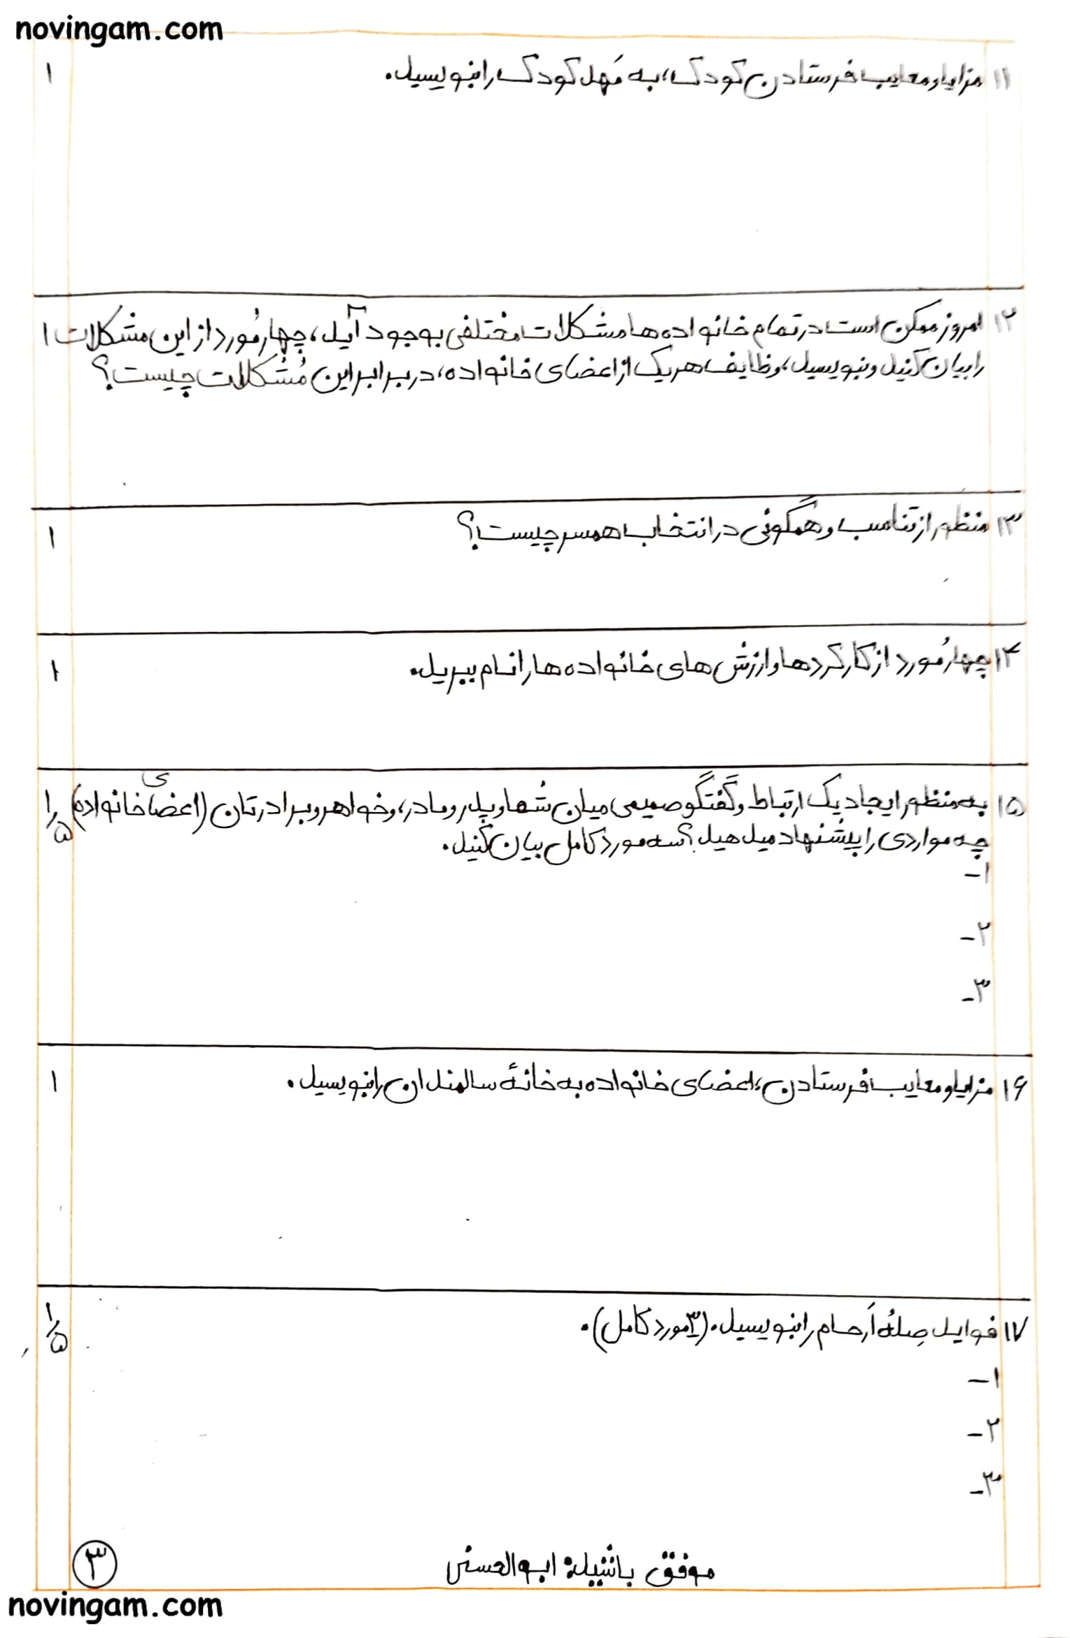 novingam.com
۱۱ مزایا و معایب فرستادن کودک، به مَهد کودک را بنویسید. ۱
۱۲ امروز ممکن است در تمام خانواده ها مشکلات مختلفی به وجود آید، چهار مُورد از این مشکلات ۱
را بیان کنید و بنویسید، وظایف هر یک از اعضای خانواده، در برابر این مُشکلات چیست؟
۱۳ منظور از تناسب و هُمگونی در انتخاب همسر چیست؟ ۱
۱۴ چهار مُورد از کارکردها و ارزش های خانواده ها را نام ببرید. ۱
۱۵ به منظور ایجاد یک ارتباط و گفتگو صمیمی میان شُما و پدر و مادر، و خواهر و برادرتان (اعضای خانواده) ۱/۵
چه مواردی را پیشُنهاد میدهید؟ سه مورد کامل بیان کنید.
۱-
۲-
۳-
۱۶ مزایا و معایب فرستادن، اعضای خانواده به خانهٔ سالمندان را بنویسید. ۱
۱۷ فواید صِلهٔ اَرحام را بنویسید. (۳ مورد کامل). ۱/۵
۱-
۲-
۳-
موفق باشید: ابوالحسنی
۳
novingam.com